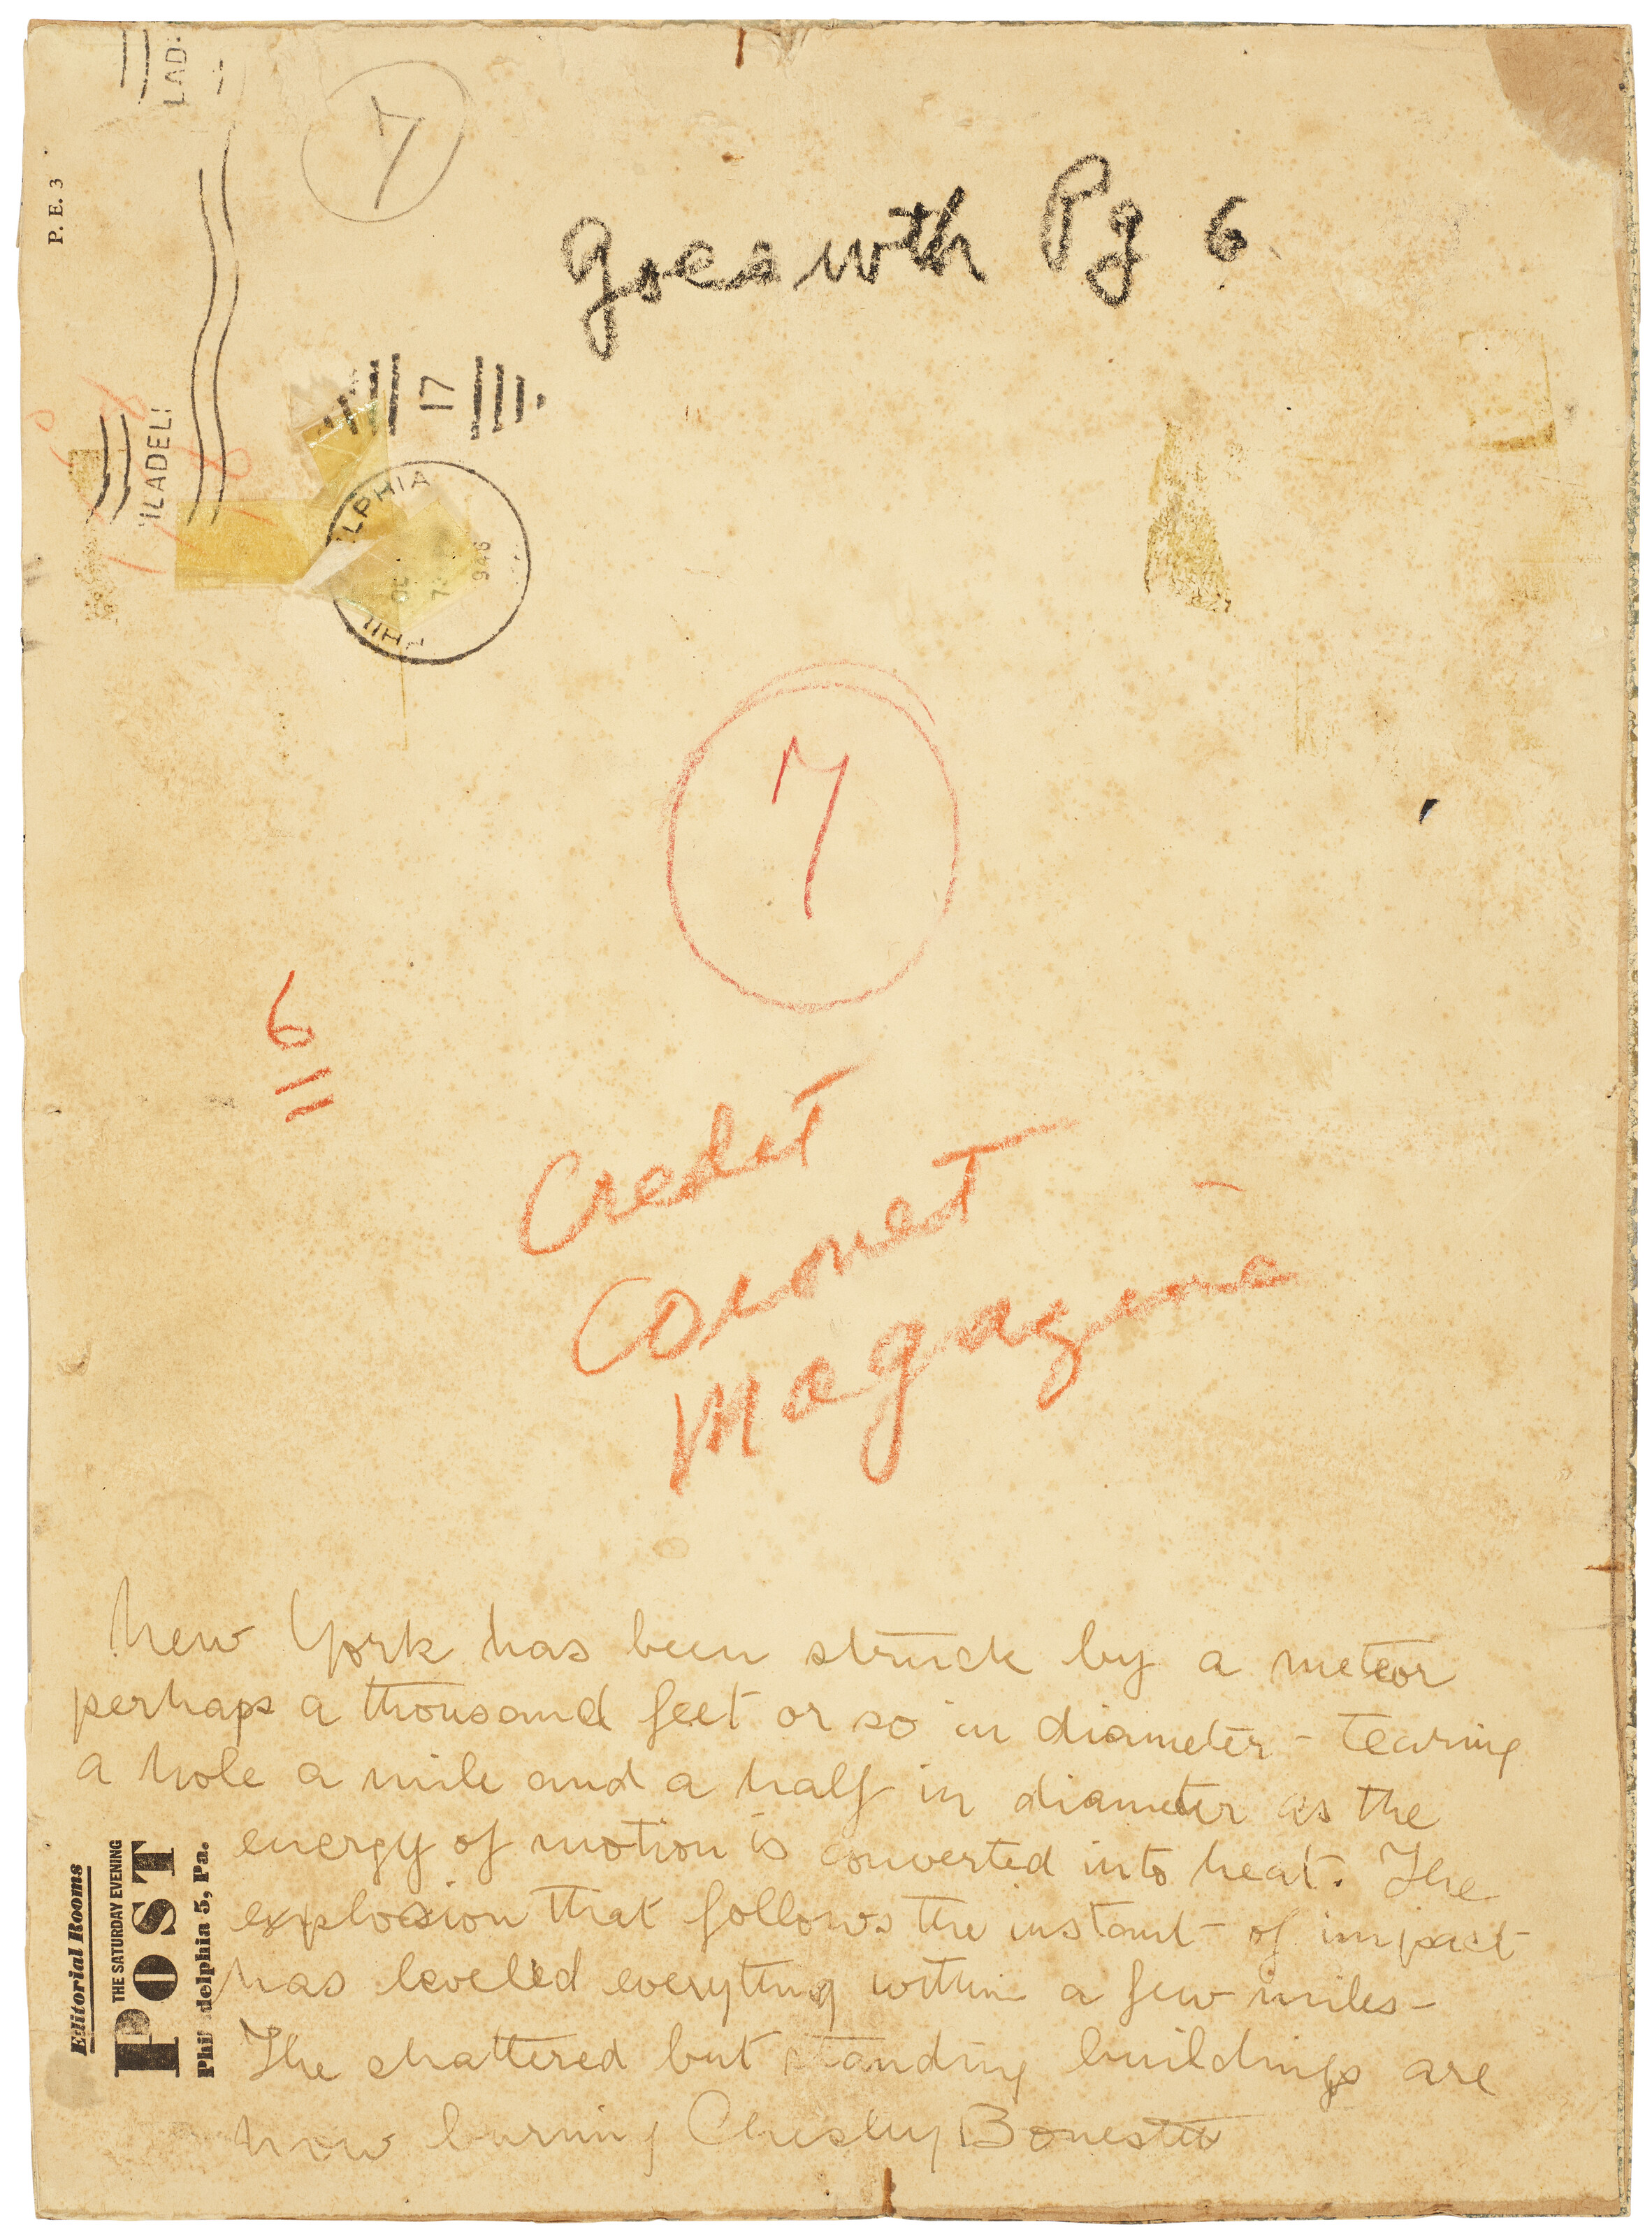 LAD
7
P. E. 3
Goes with Pg 6
17
ILADEL
LPHIA
PHIL
946
7
6
Credit
Coronet
Magazine
New York has been struck by a meteor
perhaps a thousand feet or so in diameter - tearing
a hole a mile and a half in diameter as the
energy of motion is converted into heat. The
explosion that follows the instant of impact
has leveled everything within a few miles -
The shattered but standing buildings are
now burning Chesley Bonestell
Editorial Rooms
THE SATURDAY EVENING
POST
Phil delphia 5, Pa.